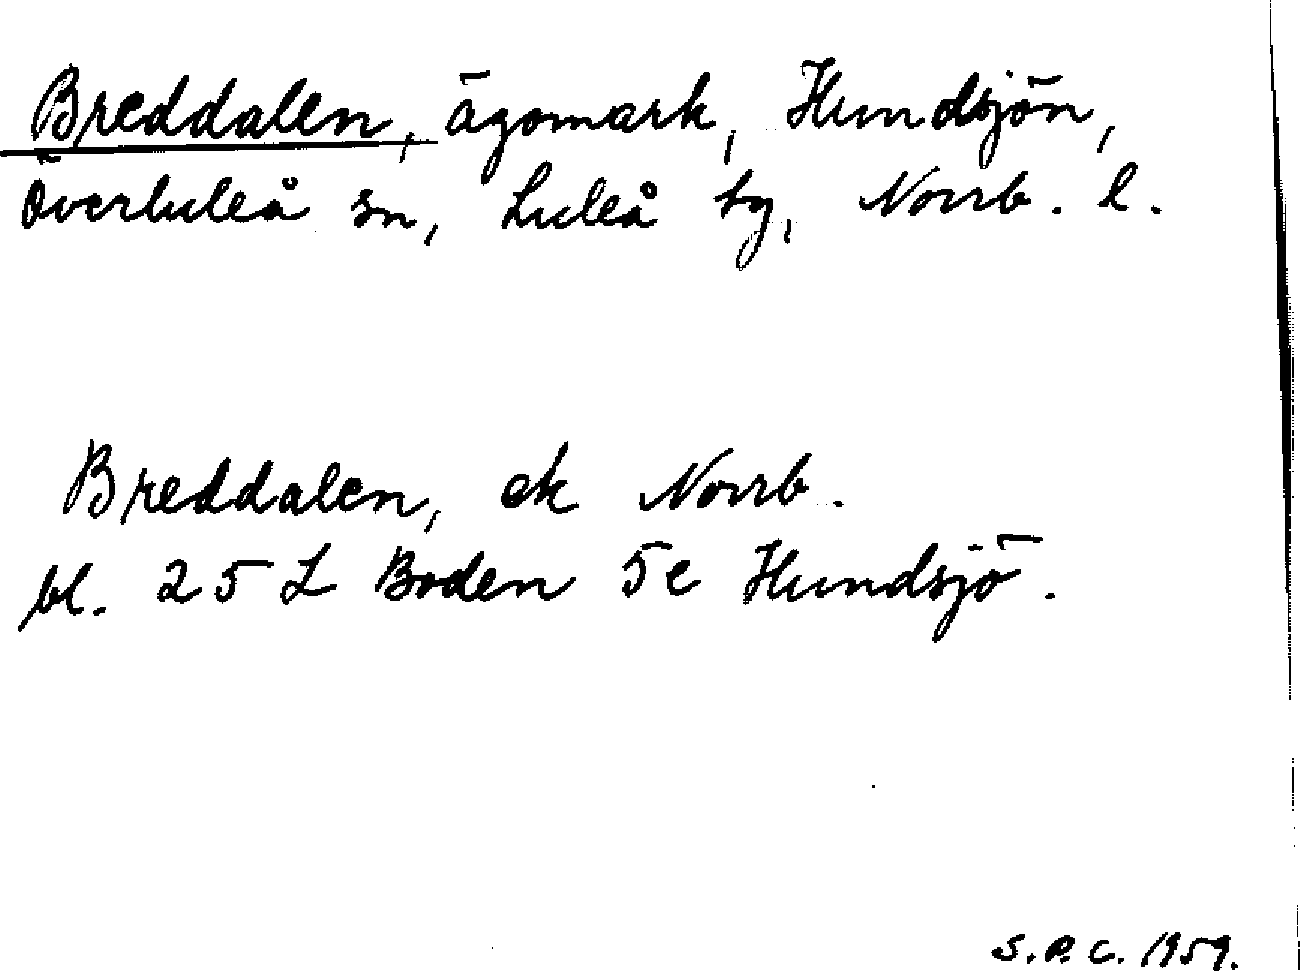 Breddalen, ägomark, Hundsjön,
Överluleå sn, Luleå tg, Norrb. l.
Breddalen, ek Norrb.
bl. 25 L Boden 5e Hundsjö.
S.P.C. 1959.